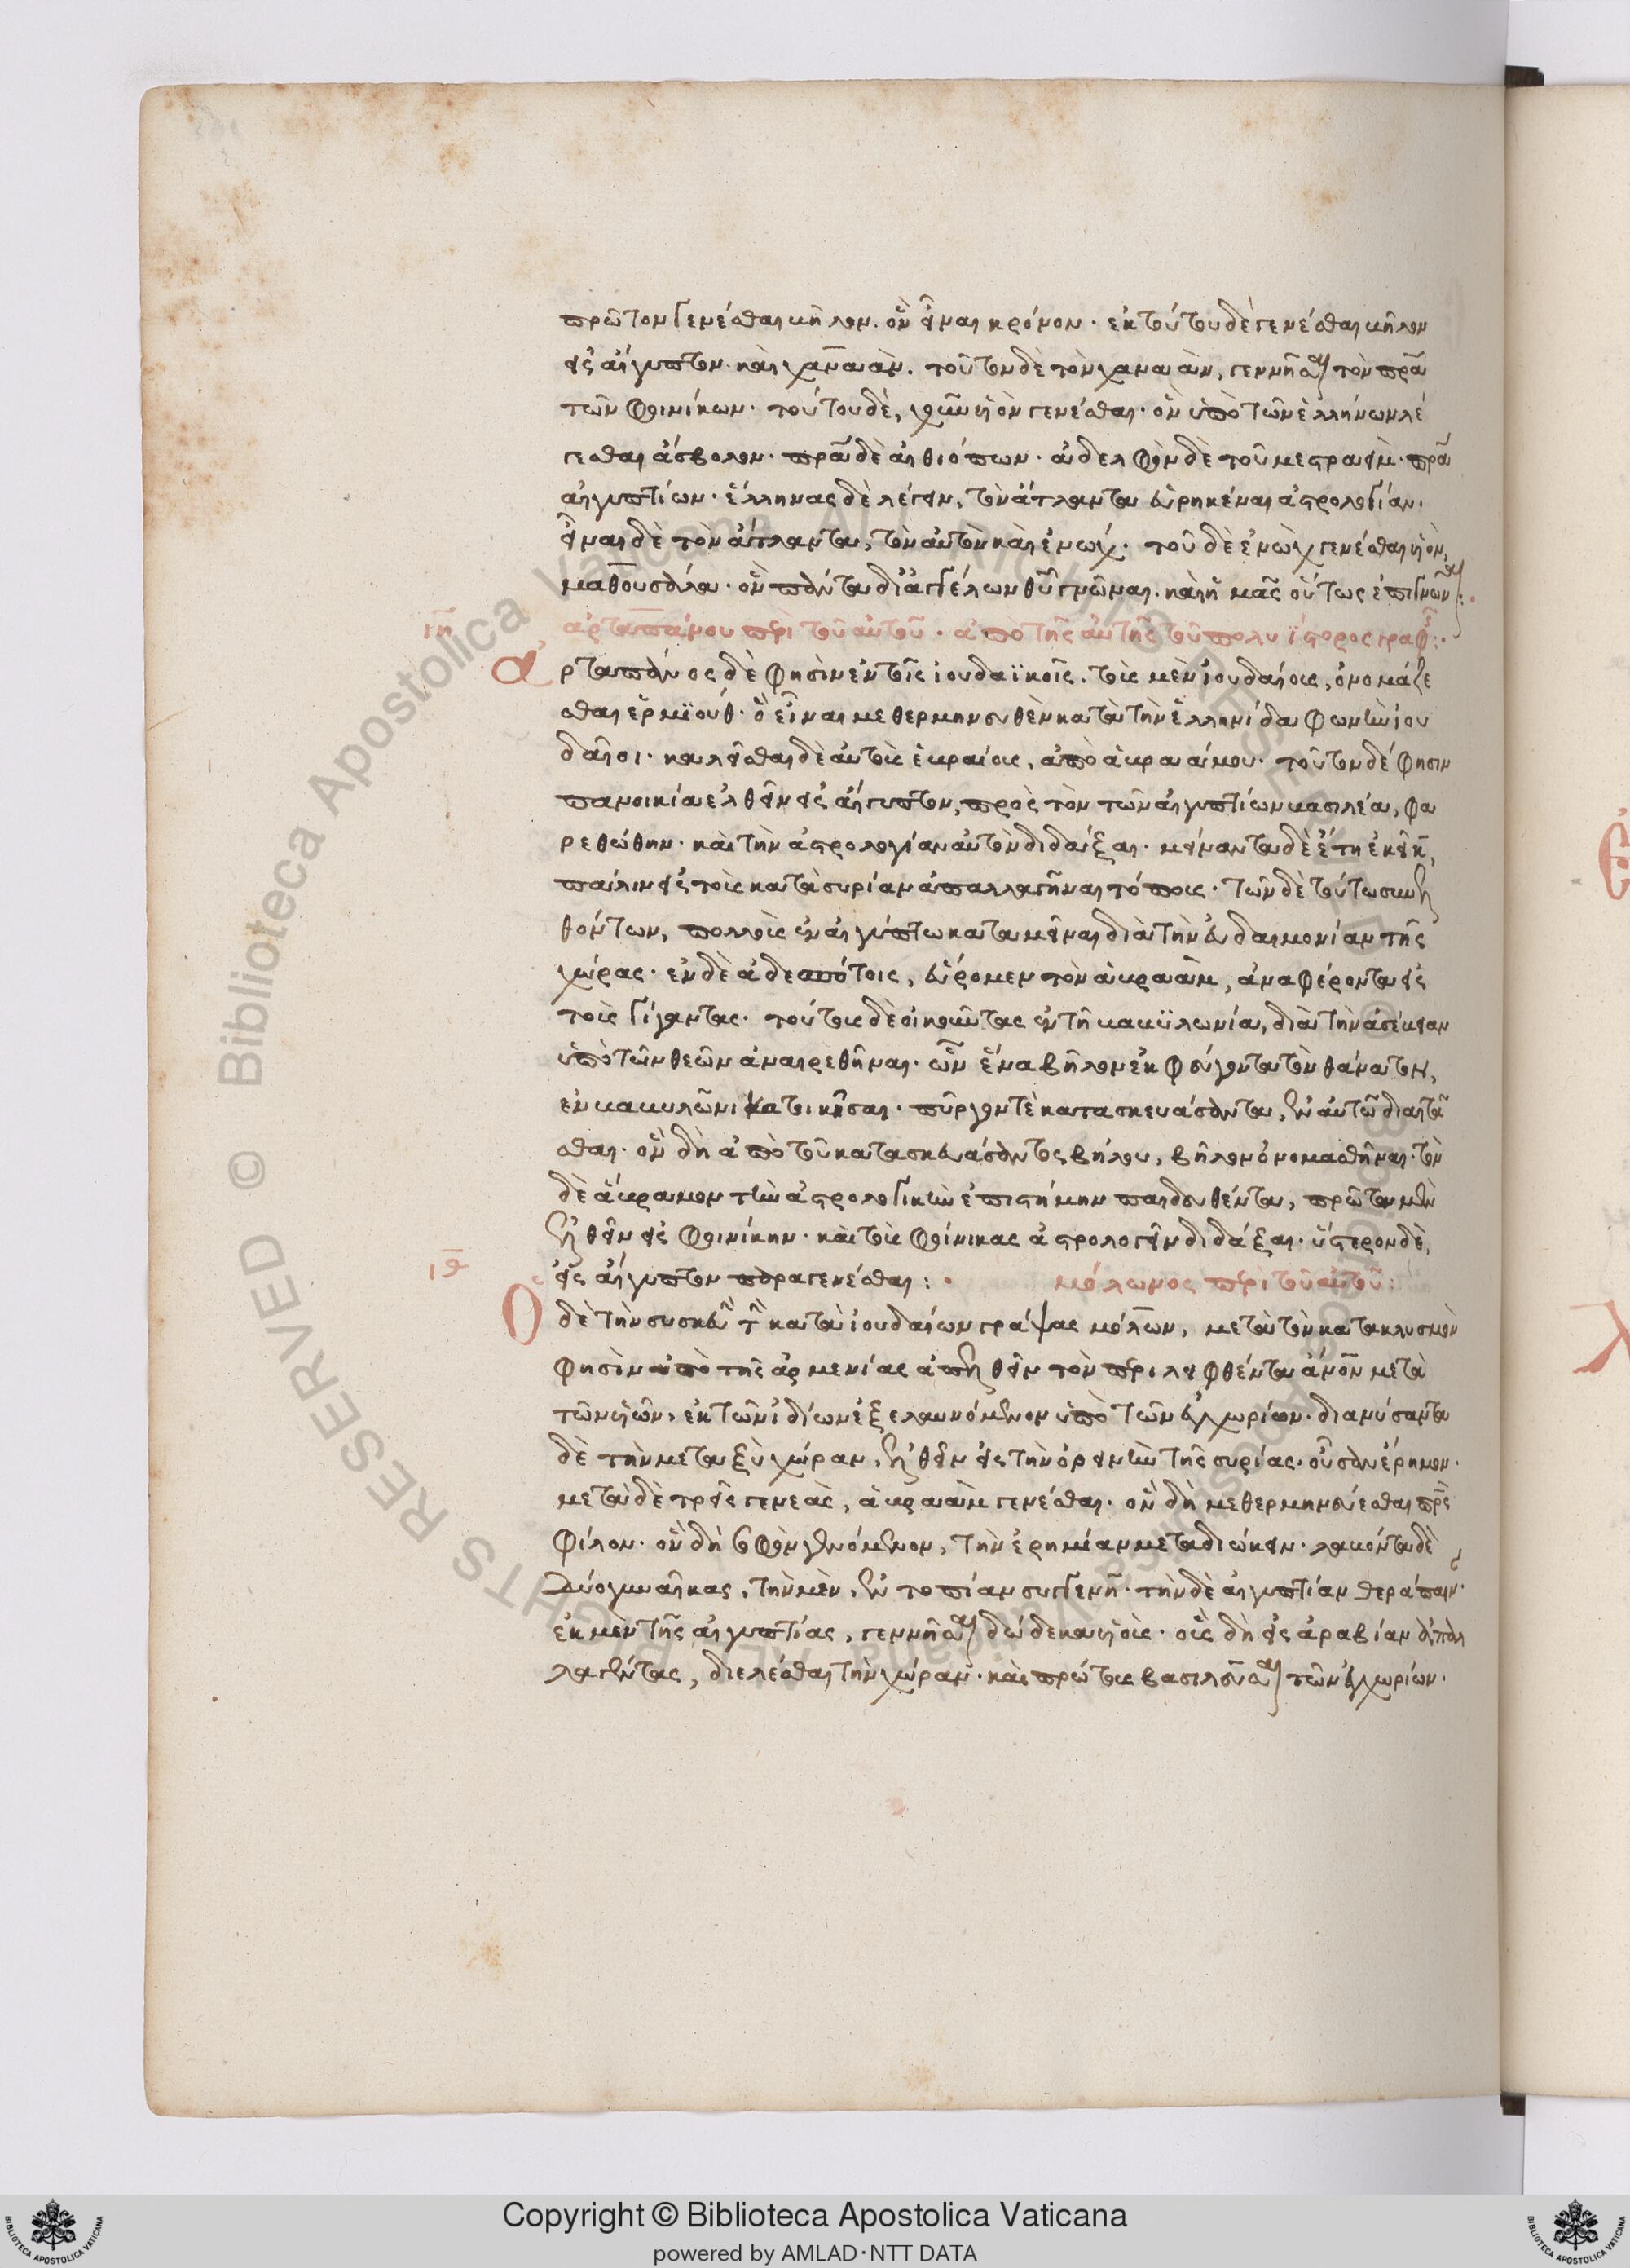 πρῶτον γενέσθαι βῆλον. ὃν εἶναι κρόνον· ἐκ τούτου δὲ γενέσθαι βῆλον
εἰς αἴγυπτον καὶ χαναὰν. τοῦτον δὲ τὸν χαναὰν, γεννῆσαι τὸν πρα
τῶν φοινίκων· τούτου δὲ, χοὺμ υἱὸν γενέσθαι· ὃν ὑπὸ τῶν ἑλλήνων λέ
γεσθαι ἄσβολον· πρα δὲ αἰθιόπων· ἀδελφὸν δὲ τοῦ μεστραεὶμ· πρα
αἰγυπτίων· ἕλληνας δὲ λέγειν, τὸν ἄτλαντα εὑρηκέναι ἀστρολογίαν.
εἶναι δὲ τὸν ἄτλαντα, τὸν αὐτὸν καὶ ἐνώχ· τοῦ δὲ ἐνὼχ γενέσθαι υἱὸν,
μαθουσάλα· ὃν πάντα δι' ἀγγέλων θεοῦ γνῶναι. καὶ ἡμᾶς οὕτως ἐπιγνῶναι:
ιη αρταπάνου περὶ τοῦ αὐτοῦ· ἀπὸ τῆς αὐτῆς τοῦ πολυΐστορος γραφῆς:
ἀρταπάνος δὲ φησὶν ἐν τοῖς ἰουδαϊκοῖς. τοὺς μὲν ἰουδαίους, ὀνομάζε
σθαι ἑρμϊούθ· ὃ εἶναι μεθερμηνευθὲν κατὰ τὴν ἑλληνίδα φωνὴν ἰου
δαῖοι· καλεῖσθαι δὲ αὐτοὺς ἑβραίους, ἀπὸ ἁβραάμου· τοῦτον δέ φησιν
πανοικία ἐλθεῖν εἰς αἴγυπτον, πρὸς τὸν τῶν αἰγυπτίων βασιλέα, φα
ρεθώθην· καὶ τὴν ἀστρολογίαν αὐτὸν διδάξαι· μείναντα δὲ ἔτη ἐκεῖ κ,
πάλιν εἰς τοὺς κατὰ συρίαν ἀπαλλαγῆναι τόπους· τῶν δὲ τούτω συνελ
θόντων, πολλοὺς ἐν αἰγύπτω καταμεῖναι διὰ τὴν εὐδαιμονίαν τῆς
χώρας· ἐν δὲ ἀδεσπότοις, εὕρομεν τὸν ἁβραὰμ, ἀναφέροντα εἰς
τοὺς γίγαντας· τούτους δὲ οἰκοῦντας ἐν τῆ βαβυλωνία, διὰ τὴν ἀσέβειαν
ὑπὸ τῶν θεῶν ἀναιρεθῆναι· ὧν ἕνα βῆλον ἐκφεύγοντα τὸν θάνατον,
ἐν βαβυλῶνι κατοικῆσαι· πύργόν τε κατασκευάσαντα, ἐν αὐτῶ διαιτᾶ
σθαι· ὃν δὴ ἀπὸ τοῦ κατασκευάσαντος βήλου, βῆλον ὀνομασθῆναι· τὸν
δὲ ἅβραμον τὴν ἀστρολογικὴν ἐπιστήμην παιδευθέντα, πρῶτον μὲν
ἐλθεῖν εἰς φοινίκην· καὶ τοὺς φοίνικας ἀστρολογεῖν διδάξαι· ὕστερον δὲ,
εἰς αἴγυπτον παραγενέσθαι: μόλωνος περὶ τοῦ αὐτοῦ:
ιθ ὁ δὲ τὴν συσκευὴν τὴν κατὰ ἰουδαίων γράψας μόλων, μετὰ τὸν κατακλυσμὸν
φησὶν ἀπὸ τῆς ἀρμενίας ἀπελθεῖν τὸν περιλειφθέντα ἄνον μετὰ
τῶν υἱῶν, ἐκ τῶν ἰδίων ἐξελαυνόμενον ὑπὸ τῶν ἐγχωρίων· διανύσαντα
δὲ τὴν μεταξὺ χώραν, ἐλθεῖν εἰς τὴν ὀρεινὴν τῆς συρίας· οὖσαν ἔρημον·
μετὰ δὲ τρεῖς γενεὰς, ἁβραὰμ γενέσθαι· ὃν δὴ μεθερμηνεύεσθαι πρς
φίλον· ὃν δὴ σοφὸν γενόμενον, τὴν ἐρημίαν μεταδιώκειν· λαβόντα δὲ
δύο γυναῖκας, τὴν μὲν, ἐντοπίαν συγγενῆ· τὴν δὲ αἰγυπτίαν θεράπαιν·
ἐκ μὲν τῆς αἰγυπτίας, γεννῆσαι δώδεκα υἱοὺς· οὓς δὴ εἰς ἀραβίαν ἀπαλ
λαγέντας, διελέσθαι τὴν χώραν· καὶ πρώτους βασιλεῦσαι τῶν ἐγχωρίων·
Copyright © Biblioteca Apostolica Vaticana
powered by AMLAD·NTT DATA